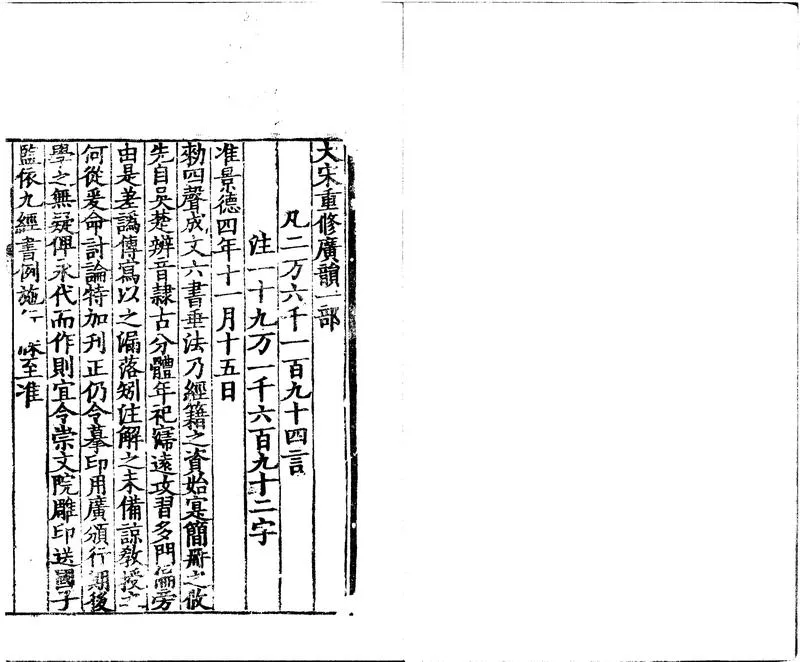 大宋重修廣韻一部
凡二万六千一百九十四言
注一十九万一千六百九十二字
准景德四年十一月十五日
勑四聲成文六書垂法乃經籍之資始寔簡冊之攸
先自吳楚辨音隷古分體年祀寖遠攻習多門偏旁
由是差譌傳寫以之漏落矧注解之未備諒教授之
何從爰命討論特加刊正仍令摹印用廣頒行期後
學之無疑俾永代而作則宜令崇文院雕印送國子
監依九經書例施行 牒至准